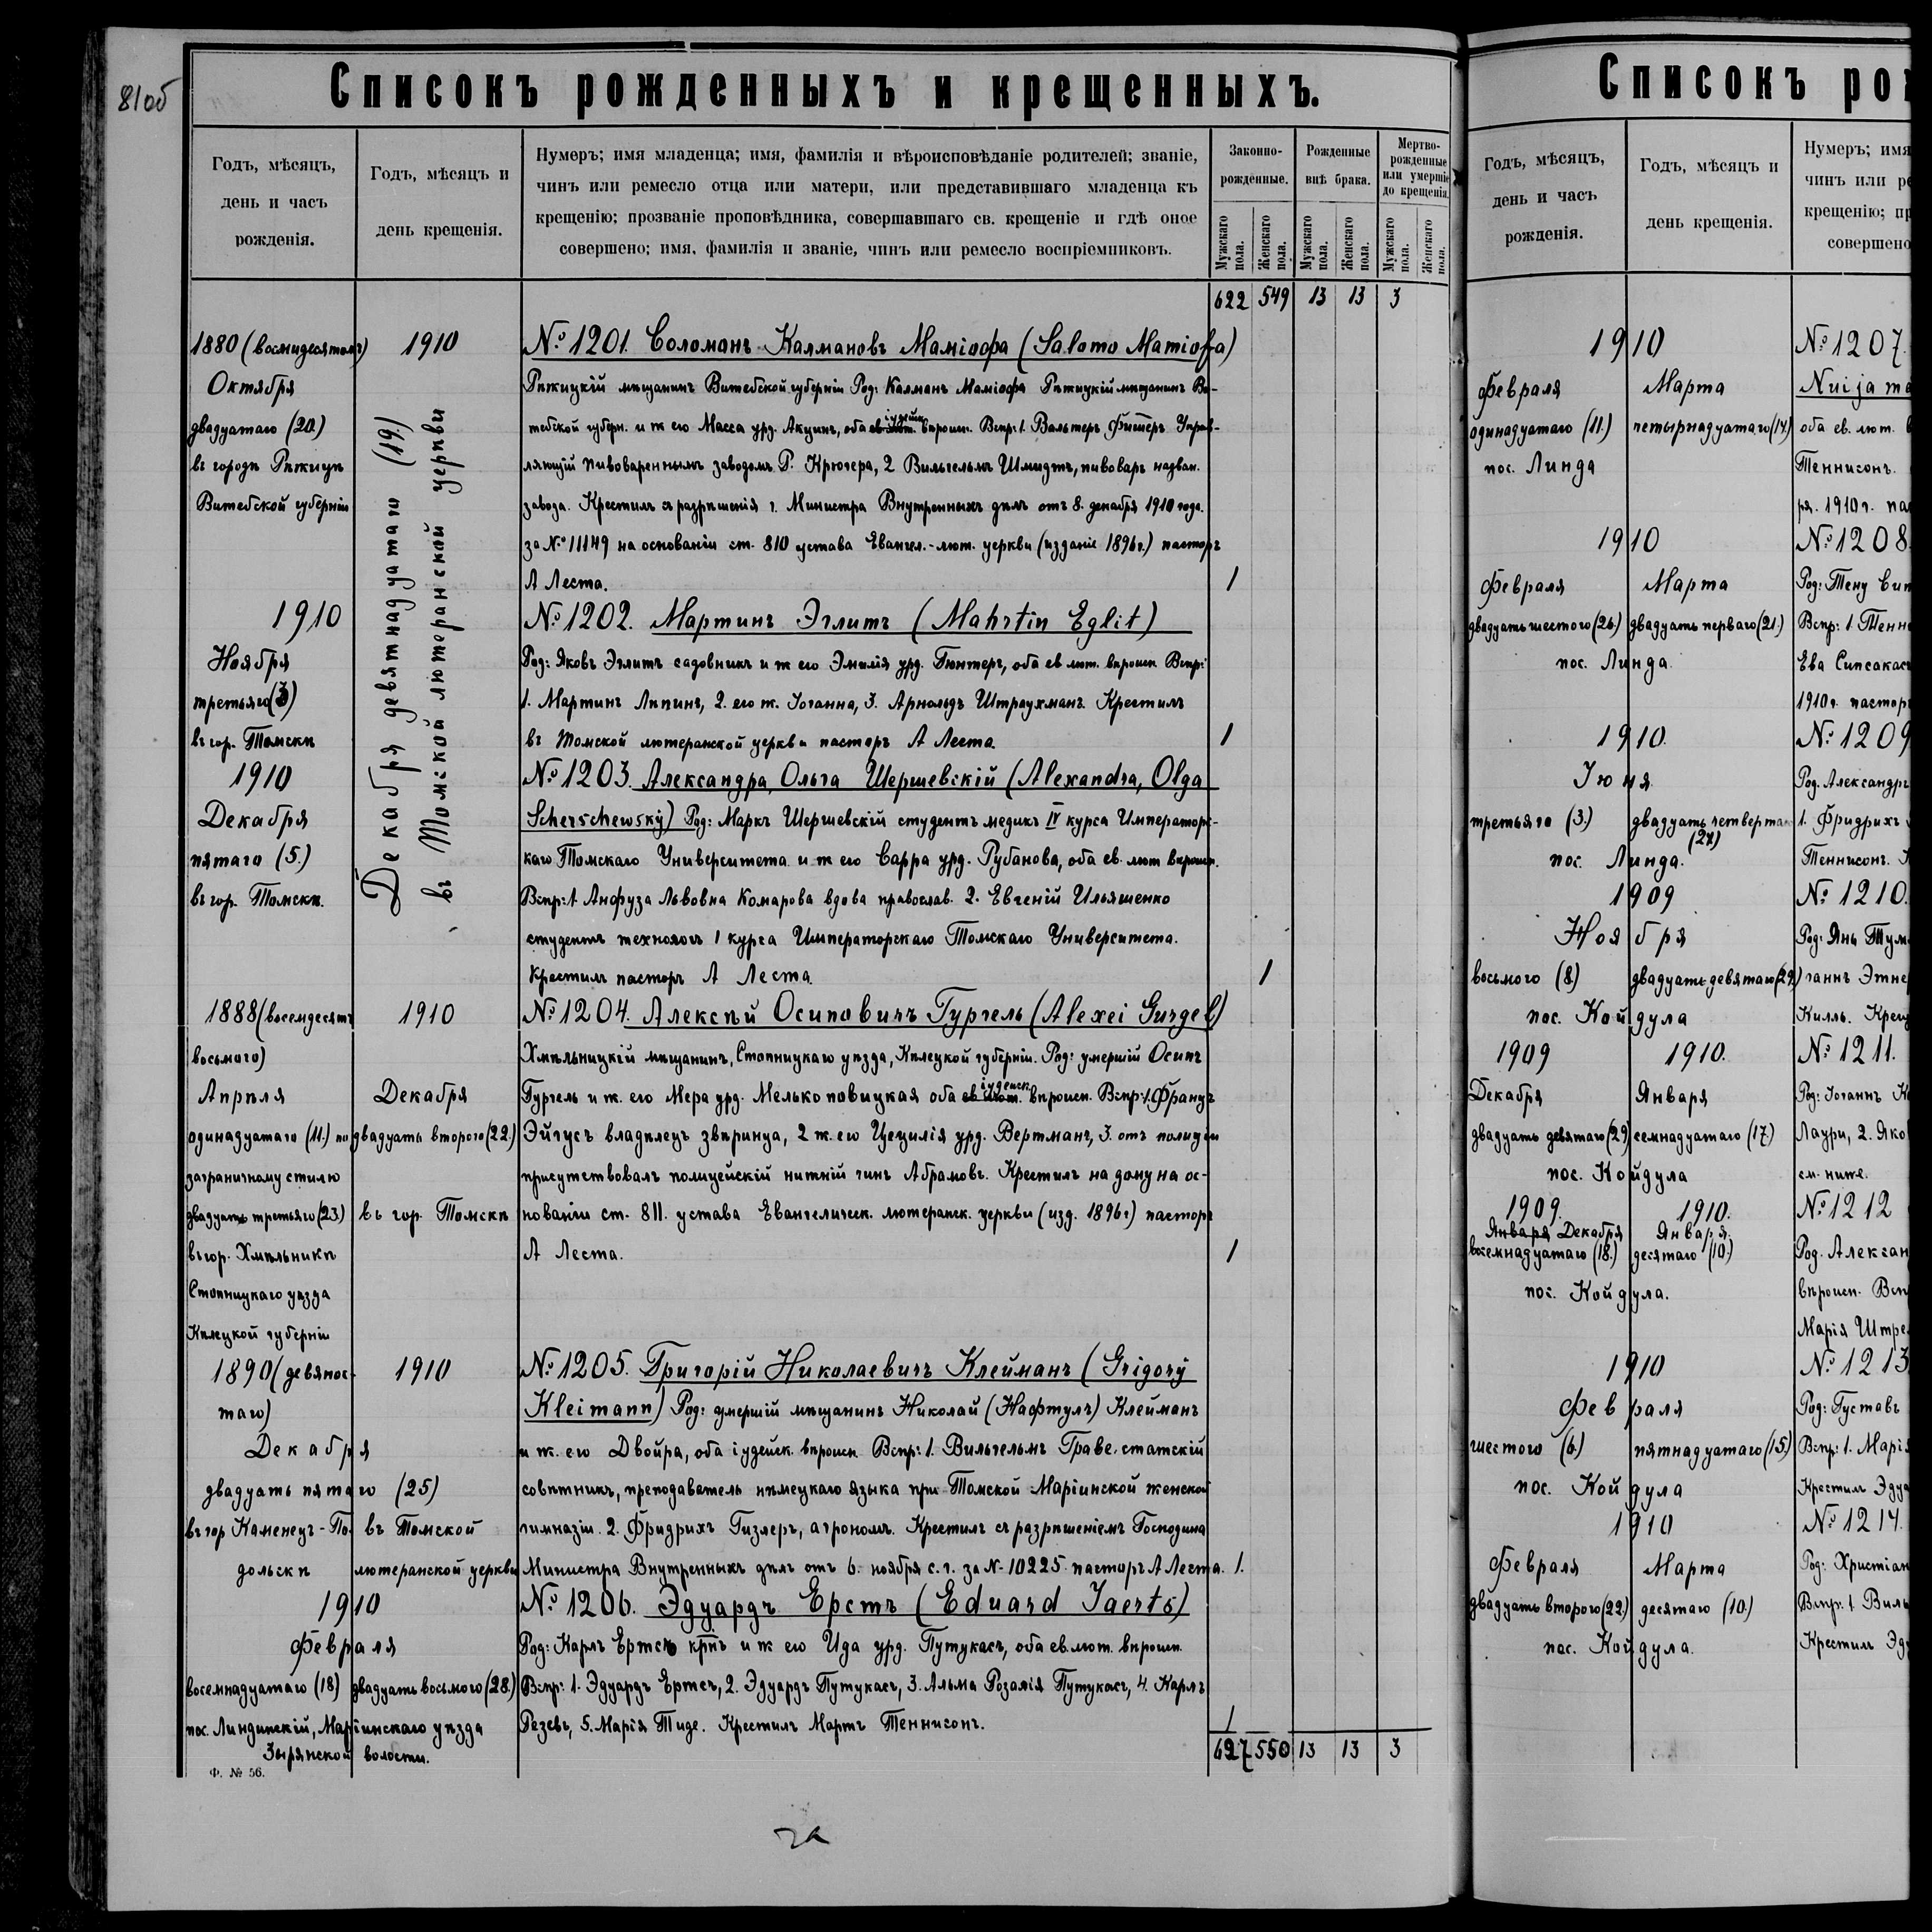 81об
Списокъ рожденныхъ и крещенныхъ.
Годъ, мѣсяцъ,
день и часъ
рожденія.
Годъ, мѣсяцъ и
день крещенія.
Нумеръ; имя младенца; имя, фамилія и вѣроисповѣданіе родителей; званіе,
чинъ или ремесло отца или матери, или представившаго младенца къ
крещенію; прозваніе проповѣдника, совершавшаго св. крещеніе и гдѣ оное
совершено; имя, фамилія и званіе, чинъ или ремесло воспріемниковъ.
Законно-
рожденные.
Рожденные
внѣ брака.
Мертво-
рожденные
или умершіе
до крещенія.
Мужскаго пола.
Женскаго пола.
Мужскаго пола.
Женскаго пола.
Мужскаго пола.
Женскаго пола.
622 549 13 13 3
1880 (восмидесятомъ)
Октября
двадцатаго (20.)
въ городѣ Рѣжицѣ
Витебской губерніи
1910
Декабря девятнадцатаго (19.)
въ Томской лютеранской церкви
№ 1201. Соломанъ Калмановъ Маміофа (Salomo Mamioffa)
Рѣжицкій мѣщанинъ Витебской губерніи Род: Калманъ Маміофа Рѣжицкій мѣщанинъ Ви-
тебской губерн. и ж его Масса урд. Акцинъ, оба ев. лют. іудейск. вѣроисп. Вспр: 1. Вальтеръ Фишеръ Управ-
ляющій пивовареннымъ заводомъ Р. Крюгера, 2 Вильгельмъ Шмидтъ, пивоваръ назван.
завода. Крестилъ съ разрѣшенія г. Министра Внутренныхъ дѣлъ отъ 8. декабря 1910 года.
за № 11149 на основаніи ст. 810 устава Евангел.-лют. церкви (изданіе 1896 г.) пасторъ
А Леста. 1
1910
Ноября
третьяго (3)
въ гор. Томскѣ
№ 1202. Мартинъ Эглитъ (Mahrtin Eglit)
Род: Яковъ Эглитъ садовникъ и ж его Эмилія урд. Гюнтеръ, оба ев лют. вѣроисп Вспр:
1. Мартинъ Лѣпинъ, 2. его ж. Іоганна, 3. Арнольдъ Штраухманъ. Крестилъ
въ Томской лютеранской церкви пасторъ А Леста. 1
1910
Декабря
пятаго (5.)
въ гор. Томскѣ.
№ 1203. Александра, Ольга Шершевскій (Alexandra, Olga
Scherschewsky) Род: Маркъ Шершевскій студентъ медикъ IV курса Императорс-
каго Томскаго Университета и ж его Сарра урд. Рубанова, оба ев. лют вѣроисп.
Вспр: 1 Анфуза Львовна Комарова вдова православ. 2. Евгеній Ильяшенко
студентъ технологъ 1 курса Императорскаго Томскаго Университета.
Крестилъ пасторъ А Леста. 1
1888 (восемдесятъ
восьмого)
Апрѣля
одинадцатаго (11.) по
заграничному стилю
двадцать третьяго (23.)
въ гор. Хмѣльникѣ
Стопницкаго уѣзда
Кѣлецкой губерніи
1910
Декабря
двадцать второго (22.)
въ гор. Томскѣ
№ 1204. Алексѣй Осиповичъ Гургель (Alexei Gurgel)
Хмѣльницкій мѣщанинъ, Стопницкаго уѣзда, Кѣлецкой губерніи. Род: умершій Осипъ
Гургель и ж. его Мера урд. Мелькоповицкая оба ев лют. іудейск. вѣроисп. Вспр: 1. Францъ
Эйгусъ владѣлецъ звѣринца, 2 ж. его Цецилія урд. Вертманъ, 3. отъ полиціи
присутствовалъ полицейскій нижній чинъ Абрамовъ. Крестилъ на дому на ос-
нованіи ст. 811. устава Евангелическ. лютеранск. церкви (изд. 1896 г) пасторъ
А Леста. 1
1890 (девянос-
таго)
Декабря
двадцать пятаго (25)
въ гор Каменецъ-По-
дольскѣ
1910
въ Томской
лютеранской церкви
№ 1205. Григорій Николаевичъ Клейманъ (Grigory
Kleimann) Род: умершій мѣщанинъ Николай (Нафтулъ) Клейманъ
и ж. его Двойра, оба іудейск. вѣроисп Вспр: 1. Вильгельмъ Граве, статскій
совѣтникъ, преподаватель нѣмецкаго языка при Томской Маріинской женской
гимназіи. 2. Фридрихъ Гизлеръ, агрономъ. Крестилъ съ разрѣшеніемъ Господина
Министра Внутренныхъ дѣлъ отъ 6. ноября с. г. за № 10225 пасторъ А Леста. 1.
1910
Февраля
восемнадцатаго (18) двадцать восьмого (28.)
пос. Линдинскій, Маріинскаго уѣзда
Зырянской волости.
№ 1206. Эдуардъ Ерстъ (Eduard Jaerts)
Род: Карлъ Ертсъ крнъ и ж его Ида урд. Путукасъ, оба ев. лют. вѣроисп.
Вспр: 1. Эдуардъ Ертсъ, 2. Эдуардъ Путукасъ, 3. Альма Розалія Путукасъ, 4. Карлъ
Резевъ, 5. Марія Тиде. Крестилъ Мартъ Теннисонъ. 1
627 550 13 13 3
Ф. № 56.
Списокъ рож
Годъ, мѣсяцъ,
день и часъ
рожденія.
Годъ, мѣсяцъ и
день крещенія.
Нумеръ; имя
чинъ или ре
крещенію; пр
совершено
1910 № 1207.
Февраля Марта Nuija ma
одинадцатаго (11.) четырнадцатаго (14.) оба ев. лют. в
пос. Линда Теннисонъ.
ря. 1910 г. пас
1910 № 1208.
Февраля Марта Род: Тену Сип
двадцать шестого (26.) двадцать перваго (21.) Вспр: 1. Тенн
пос. Линда. Ева Сипсакас
1910 г. пастор
1910. № 1209
Іюня. Род. Александръ
третьяго (3.) двадцать четвертаго (24) 1. Фридрихъ
пос. Линда. Теннисонъ. К
1909 № 1210.
Ноября Род: Янъ Тум
восьмого (8.) двадцать девятаго (29.) ганнъ Этне
пос. Койдула Килль. Крещ
1909 1910. № 1211.
Декабря Января Род: Іоганнъ К
двадцать девятаго (29) семнадцатаго (17.) Лаури, 2. Яко
пос. Койдула см. ниже.
1909. 1910. № 1212
Января Декабря Января.
восемнадцатаго (18.) десятаго (10.) Род. Алексан
пос. Койдула. вѣроисп. Всп
Марія Штре
1910 № 1213
Февраля Род: Густавъ
шестого (6.) пятнадцатаго (15.) Вспр: 1. Марія
пос. Койдула Крестилъ Эдуа
1910 № 1214.
Февраля Марта Род: Христіан
двадцать второго (22.) десятаго (10.) Вспр: 1 Виль
пос. Койдула. Крестилъ Эду